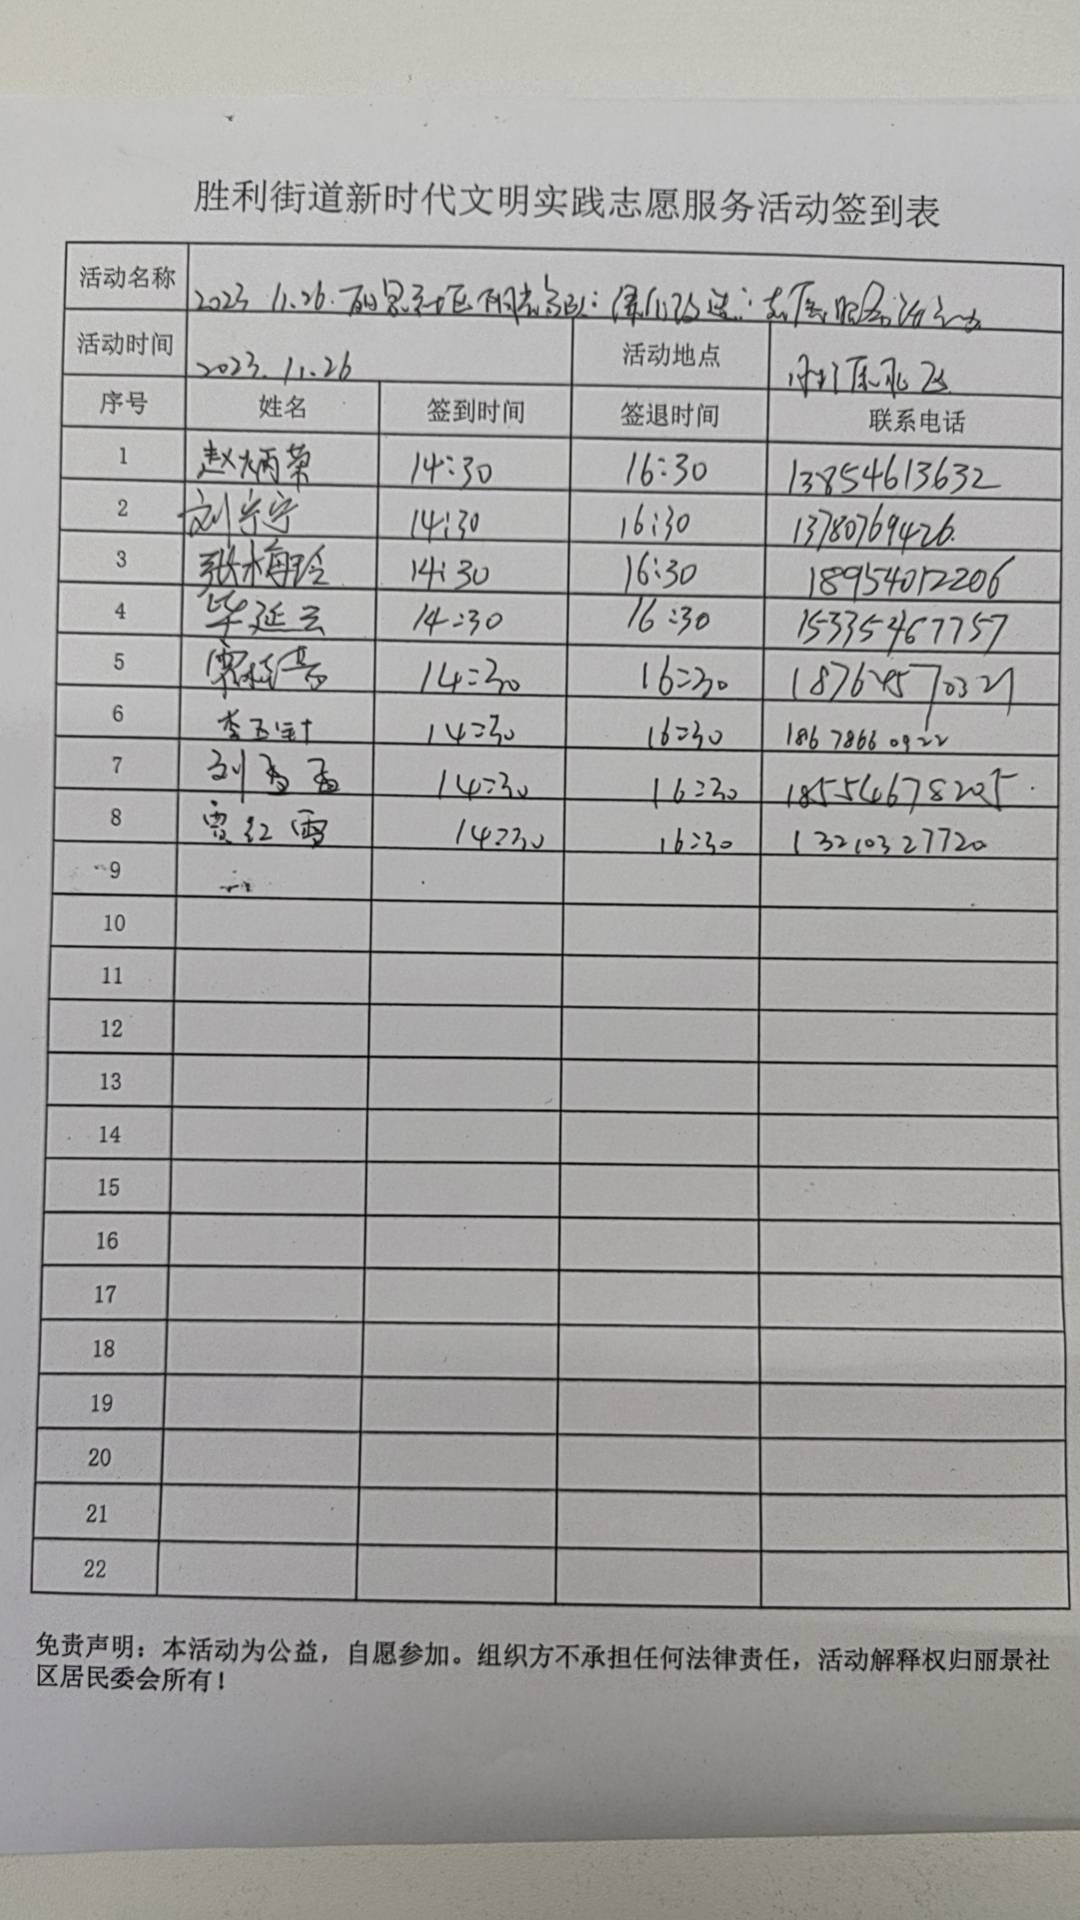 胜利街道新时代文明实践志愿服务活动签到表
活动名称 2023 11.26. 丽景社区阳光 志愿服务活动
活动时间 2023.11.26 活动地点
序号 姓名 签到时间 签退时间 联系电话
1 赵炳荣 14:30 16:30 13854613632
2 刘宁宁 14:30 16:30 13780769426.
3 张梅玲 14:30 16:30 18954012206
4 毕延云 14:30 16:30 15335467757
5 14:30 16:30
6 李玉 14:30 16:30 18678660922
7 刘 14:30 16:30 18554678205
8 贾红雪 14:30 16:30 13210327720
9
10
11
12
13
14
15
16
17
18
19
20
21
22
免责声明：本活动为公益，自愿参加。组织方不承担任何法律责任，活动解释权归丽景社
区居民委会所有！